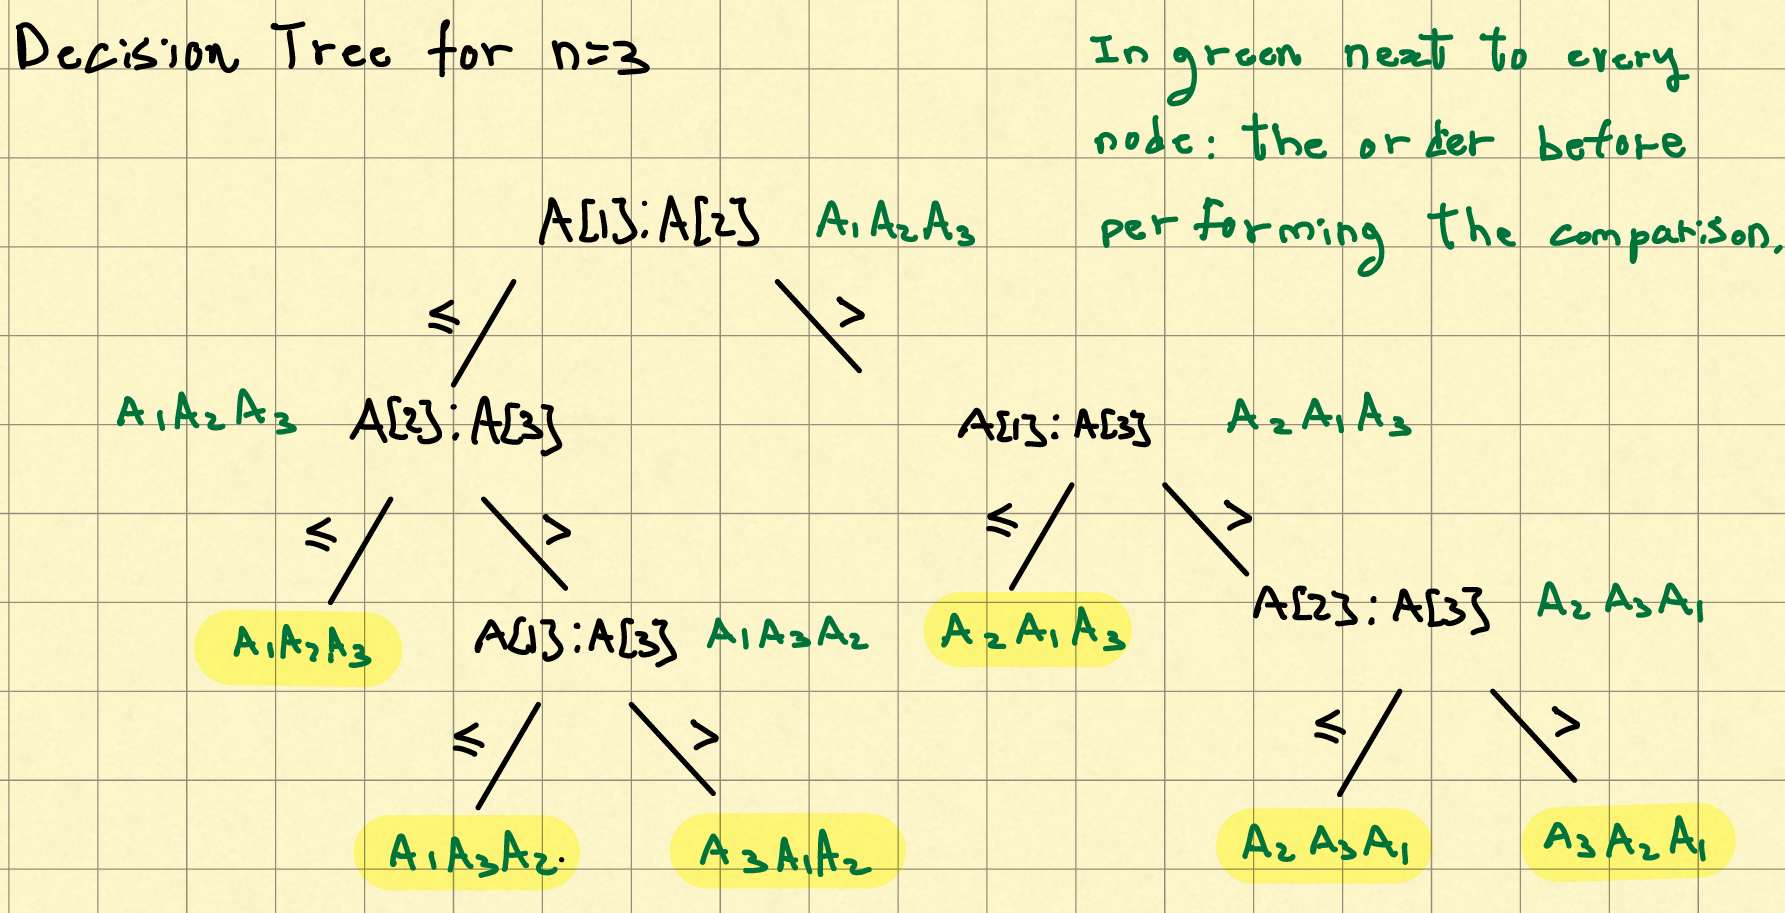 Decision Tree for n=3
In green next to every
node: the order before
performing the comparison.
A[1]:A[2] A₁A₂A₃
≤ >
A₁A₂A₃ A[2]:A[3]
A[1]:A[3] A₂A₁A₃
≤ >
≤ >
A₁A₂A₃
A[1]:A[3] A₁A₃A₂
A₂A₁A₃
A[2]:A[3] A₂A₃A₁
≤ >
≤ >
A₁A₃A₂.
A₃A₁A₂
A₂A₃A₁
A₃A₂A₁